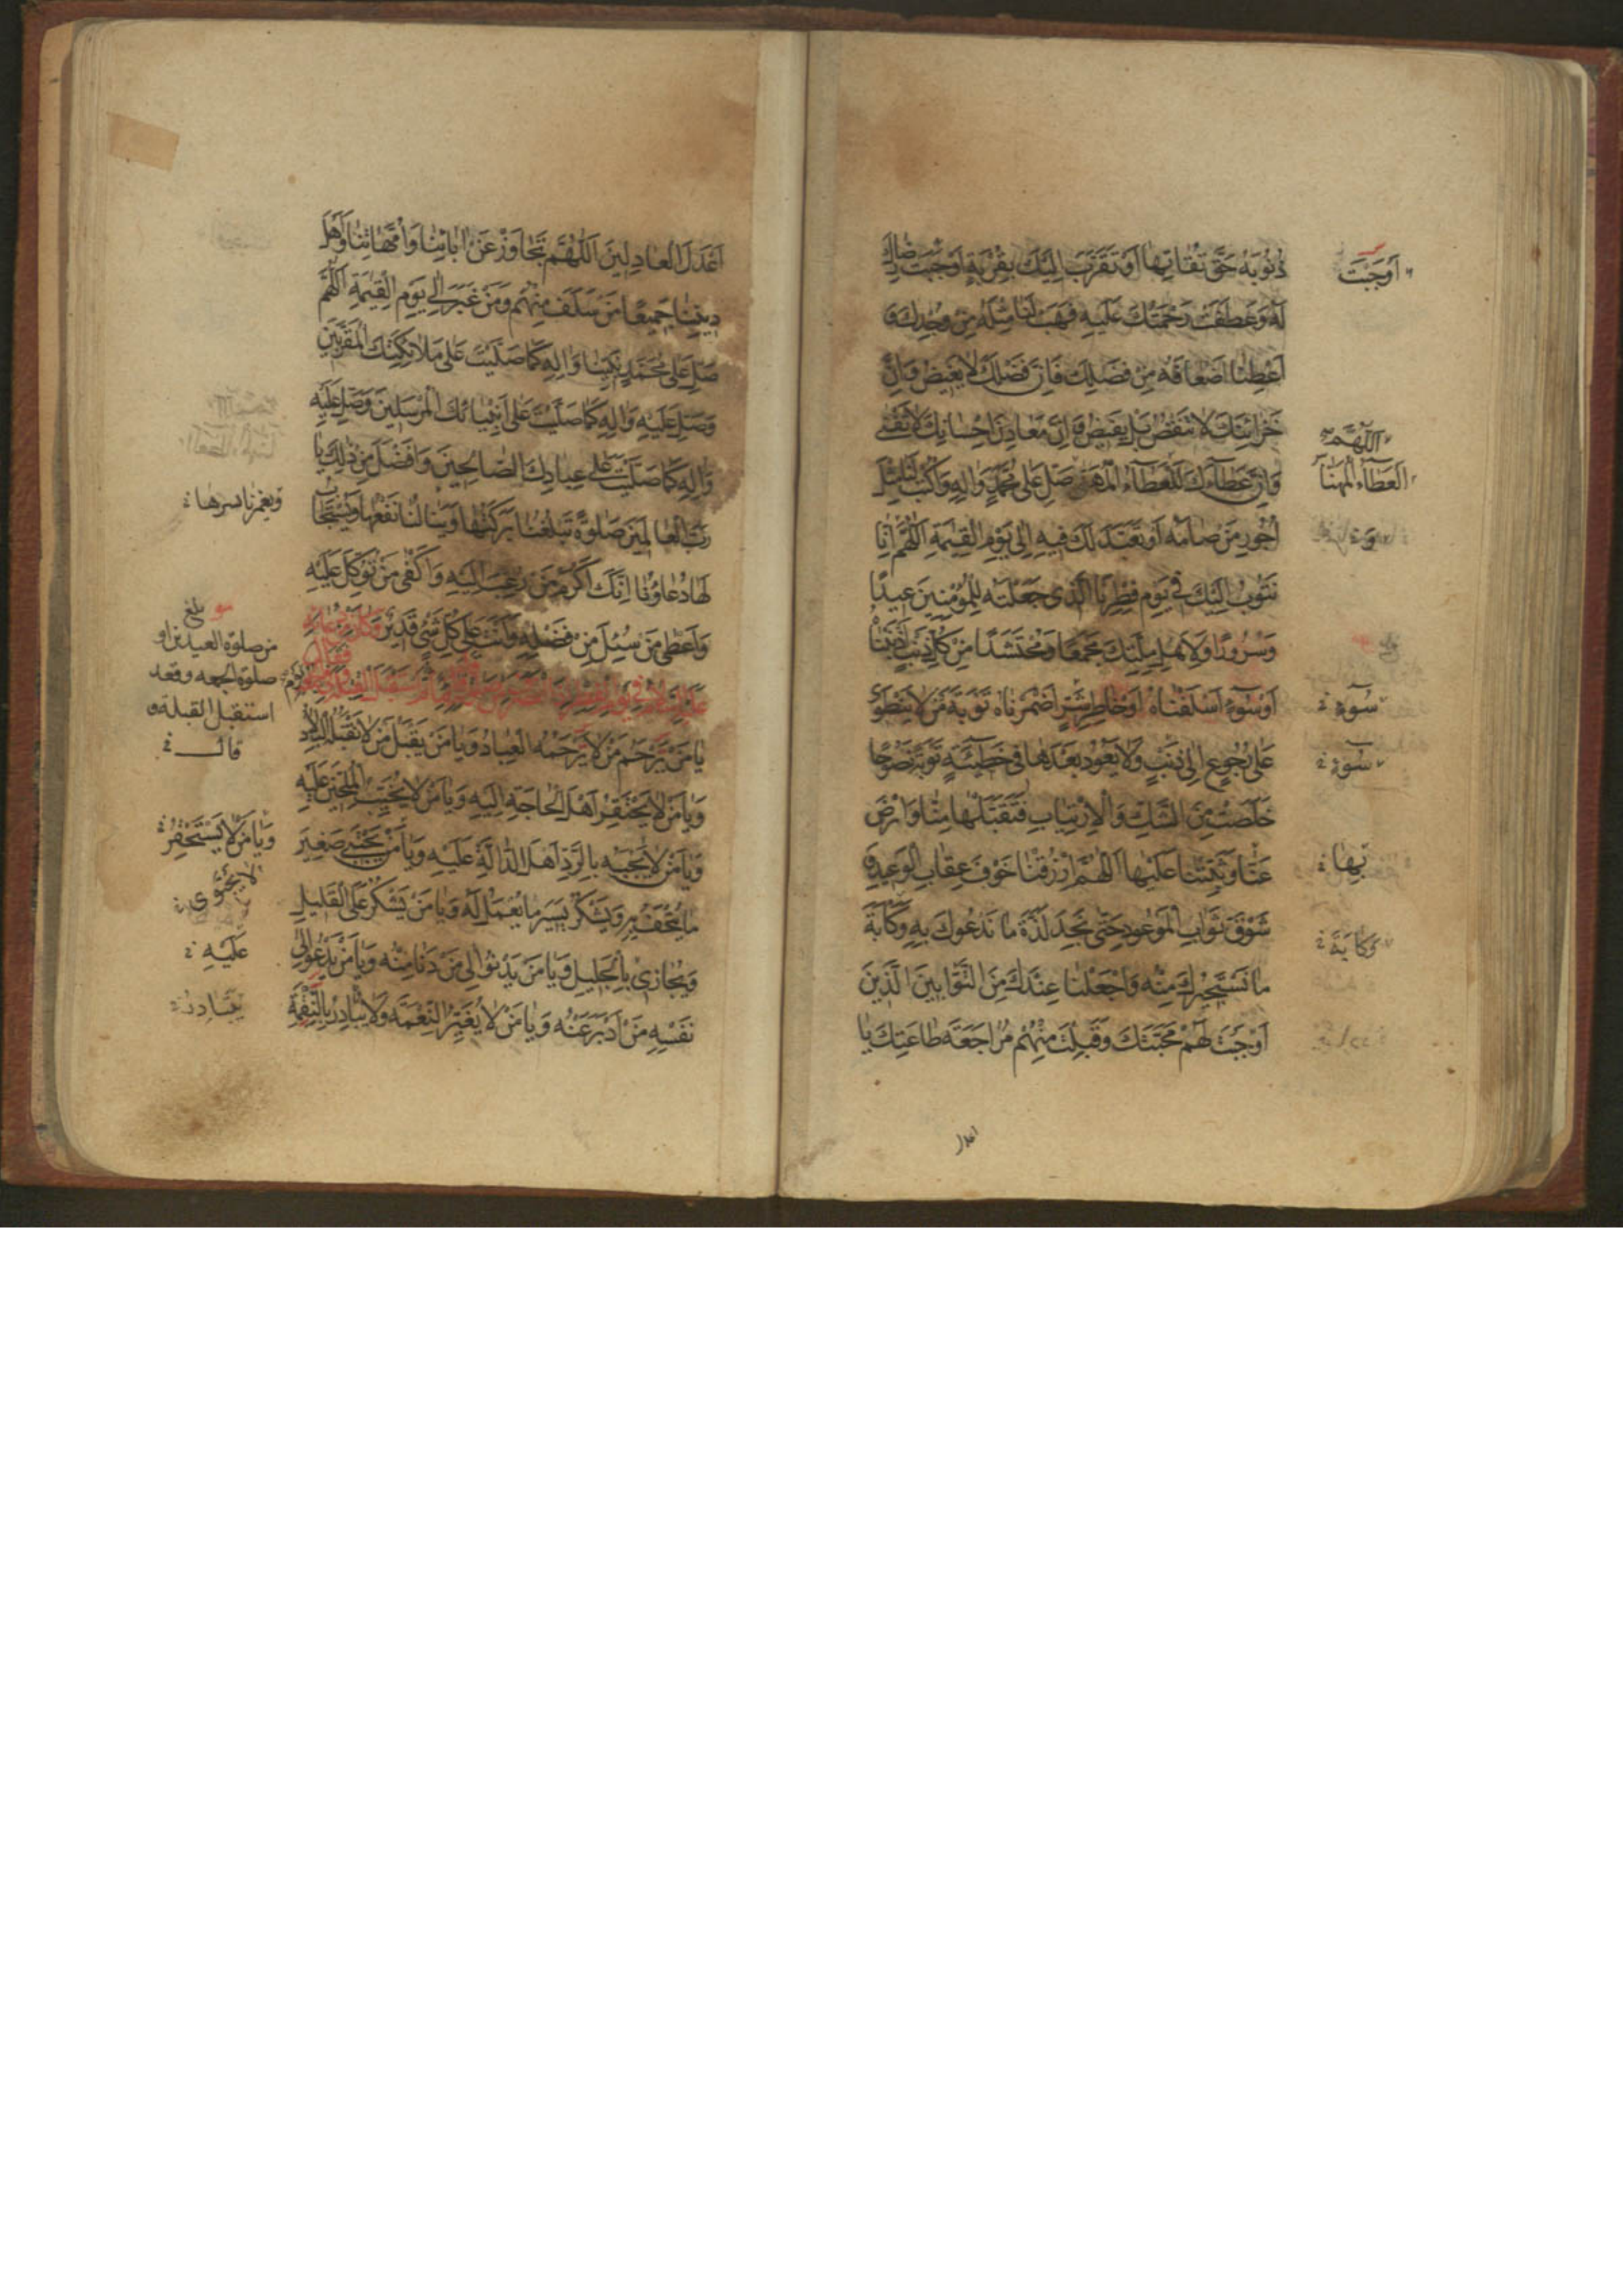 ذُنُوبَهُ حَقَّ تُقَاتِهَا أَوْ تَقَرَّبَ إِلَيْكَ بِقُرْبَةٍ أَوْجَبَتْ رِضَاكَ
لَهُ وَعَطَفَتْ رَحْمَتُكَ عَلَيْهِ فَهَبْ لَنَا مِثْلَهُ مِنْ وُجْدِكَ وَ
أَعْطِنَا أَضْعَافَهُ مِنْ فَضْلِكَ فَإِنَّ فَضْلَكَ لَا يَغِيضُ وَإِنَّ
خَزَائِنَكَ لَا تَنْقُصُ بَلْ يَفِيضُ وَإِنَّ مَعَادِنَ إِحْسَانِكَ لَا تَفْنَى
وَإِنَّ عَطَاءَكَ لَلْعَطَاءُ الْمُهَنَّا صَلِّ عَلَى مُحَمَّدٍ وَآلِهِ وَاكْتُبْ لَنَا مِثْلَ
أُجُورِ مَنْ صَامَهُ أَوْ تَعَبَّدَ لَكَ فِيهِ إِلَى يَوْمِ الْقِيٰمَةِ اَللّٰهُمَّ إِنَّا
نَتُوبُ إِلَيْكَ فِي يَوْمِ فِطْرِنَا الَّذِي جَعَلْتَهُ لِلْمُؤْمِنِينَ عِيدًا
وَسُرُورًا وَلِأَهْلِ مِلَّتِكَ مَجْمَعًا وَمُحْتَشَدًا مِنْ كُلِّ ذَنْبٍ أَذْنَبْنَاهُ
أَوْ سُوءٍ أَسْلَفْنَاهُ أَوْ خَاطِرِ شَرٍّ أَضْمَرْنَاهُ تَوْبَةَ مَنْ لَا يَنْطَوِي
عَلَى رُجُوعٍ إِلَى ذَنْبٍ وَلَا يَعُودُ بَعْدَهَا فِي خَطِيئَةٍ تَوْبَةً نَصُوحًا
خَلَصَتْ مِنَ الشَّكِّ وَالْاِرْتِيَابِ فَتَقَبَّلْهَا مِنَّا وَارْضَ
عَنَّا وَثَبِّتْنَا عَلَيْهَا اَللّٰهُمَّ ارْزُقْنَا خَوْفَ عِقَابِ الْوَعِيدِ وَ
شَوْقَ ثَوَابِ الْمَوْعُودِ حَتَّى نَجِدَ لَذَّةَ مَا نَدْعُوكَ بِهِ وَكَآبَةَ
مَا نَسْتَجِيرُكَ مِنْهُ وَاجْعَلْنَا عِنْدَكَ مِنَ التَّوَّابِينَ الَّذِينَ
أَوْجَبْتَ لَهُمْ مَحَبَّتَكَ وَقَبِلْتَ مِنْهُمْ مُرَاجَعَةَ طَاعَتِكَ يَا
أَوْجَبَتْ
اَللّٰهُمَّ
الْعَطَاءُ الْمُهَنَّا
سُوءٍ
سُوءٍ
بِهَا
وَكَآبَةَ
اعدل
أَعْدَلَ الْعَادِلِينَ اَللّٰهُمَّ تَجَاوَزْ عَنْ آبَائِنَا وَأُمَّهَاتِنَا وَأَهْلِ
دِينِنَا جَمِيعًا مَنْ سَلَفَ مِنْهُمْ وَمَنْ غَبَرَ إِلَى يَوْمِ الْقِيٰمَةِ اَللّٰهُمَّ
صَلِّ عَلَى مُحَمَّدٍ نَبِيِّنَا وَآلِهِ كَمَا صَلَّيْتَ عَلَى مَلَائِكَتِكَ الْمُقَرَّبِينَ
وَصَلِّ عَلَيْهِ وَآلِهِ كَمَا صَلَّيْتَ عَلَى أَنْبِيَائِكَ الْمُرْسَلِينَ وَصَلِّ عَلَيْهِ
وَآلِهِ كَمَا صَلَّيْتَ عَلَى عِبَادِكَ الصَّالِحِينَ وَأَفْضَلَ مِنْ ذٰلِكَ يَا
رَبَّ الْعَالَمِينَ صَلٰوةً تَبْلُغُنَا بَرَكَتُهَا وَيَنَالُنَا نَفْعُهَا وَيُسْتَجَابُ
لَهَا دُعَاؤُنَا إِنَّكَ أَكْرَمُ مَنْ رُغِبَ إِلَيْهِ وَأَكْفَى مَنْ تُوُكِّلَ عَلَيْهِ
وَأَعْطَى مَنْ سُئِلَ مِنْ فَضْلِهِ وَأَنْتَ عَلَى كُلِّ شَيْءٍ قَدِيرٌ وَكَانَ مِنْ دُعَائِهِ
عَلَيْهِ السَّلَامُ فِي يَوْمِ الْفِطْرِ
يَا مَنْ يَرْحَمُ مَنْ لَا يَرْحَمُهُ الْعِبَادُ وَيَا مَنْ يَقْبَلُ مَنْ لَا تَقْبَلُهُ الْبِلَادُ
وَيَا مَنْ لَا يَحْتَقِرُ أَهْلَ الْحَاجَةِ إِلَيْهِ وَيَا مَنْ لَا يُخَيِّبُ الْمُلِحِّينَ عَلَيْهِ
وَيَا مَنْ لَا يَجْبَهُ بِالرَّدِّ أَهْلَ الدَّالَّةِ عَلَيْهِ وَيَا مَنْ يَجْتَبِي صَغِيرَ
مَا يُتْحَفُ بِهِ وَيَشْكُرُ يَسِيرَ مَا يُعْمَلُ لَهُ وَيَا مَنْ يَشْكُرُ عَلَى الْقَلِيلِ
وَيُجَازِي بِالْجَلِيلِ وَيَا مَنْ يَدْنُو إِلَى مَنْ دَنَا مِنْهُ وَيَا مَنْ يَدْعُو إِلَى
نَفْسِهِ مَنْ أَدْبَرَ عَنْهُ وَيَا مَنْ لَا يُغَيِّرُ النِّعْمَةَ وَلَا يُبَادِرُ بِالنَّقِمَةِ
ويغمرنا يسرها
بلغ
من صلوة العيدين او
صلوة الجمعه وقعد
استقبل القبلة و
قال
وَيَا مَنْ لَا يَسْتَحْقِرُ
عَلَيْهِ